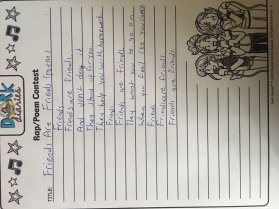 DORK
diaries
Rap/Poem Contest
TITLE: Friends Are Friends (poem)
Friends
Friends are friends
And don't deny it
They stand up for you
They help you with homework
Friends
Friends are friends
They want you to go on
When you feel like you can't
Friends
Friends are friends
Friends are friends